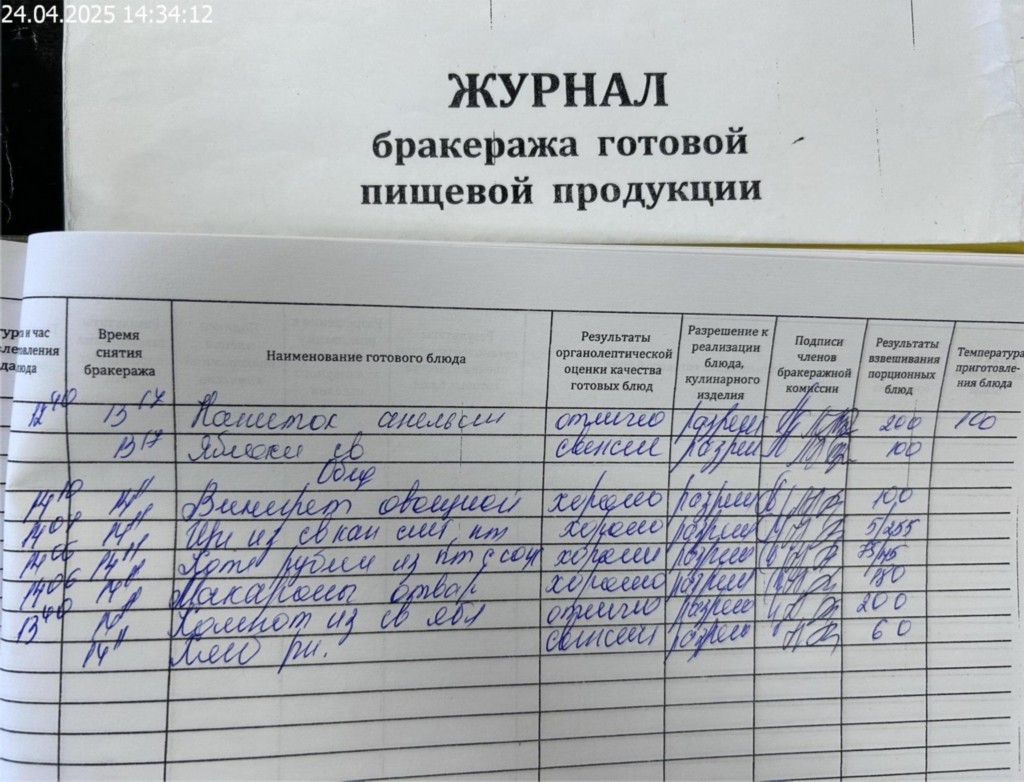 24.04.2025 14:34:12
ЖУРНАЛ
бракеража готовой
пищевой продукции
Время снятия бракеража
Наименование готового блюда
Результаты органолептической оценки качества готовых блюд
Разрешение к реализации блюда, кулинарного изделия
Подписи членов бракеражной комиссии
Результаты взвешивания порционных блюд
Температура приготовле-ния блюда
12 40 13 17 Напиток апельсин отлично разреш 200 100
13 17 Яблоки св свежий разреш 100
Обед
14 10 14 11 Винегрет овощной хорошо разреш 100
14 04 14 11 Щи из св кап смет, пт хорошо разреш 5/255
14 06 14 11 Котл рублен из пт с соу хорошо разреш
14 06 14 11 Макароны отвар хорошо разреш
13 40 14 11 Компот из св ябл отлично разреш 200
14 11 свежий разреш 60